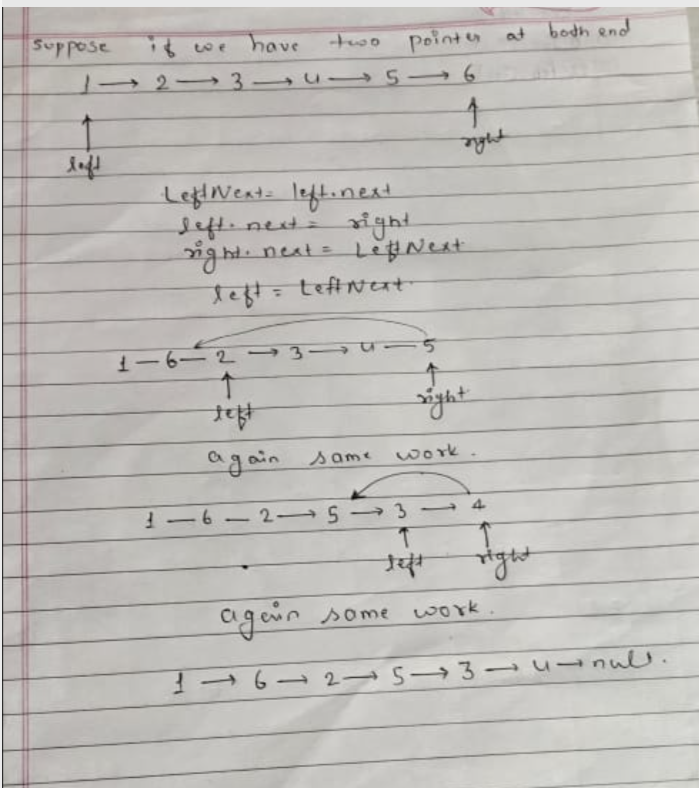 suppose if we have two pointer at both end
1 → 2 → 3 → 4 → 5 → 6
left right
LeftNext = left.next
left.next = right
right.next = LeftNext
left = LeftNext.
1 — 6 — 2 → 3 → 4 — 5
left right
again same work.
1 — 6 — 2 → 5 → 3 → 4
left right
again same work.
1 → 6 → 2 → 5 → 3 → 4 → null.